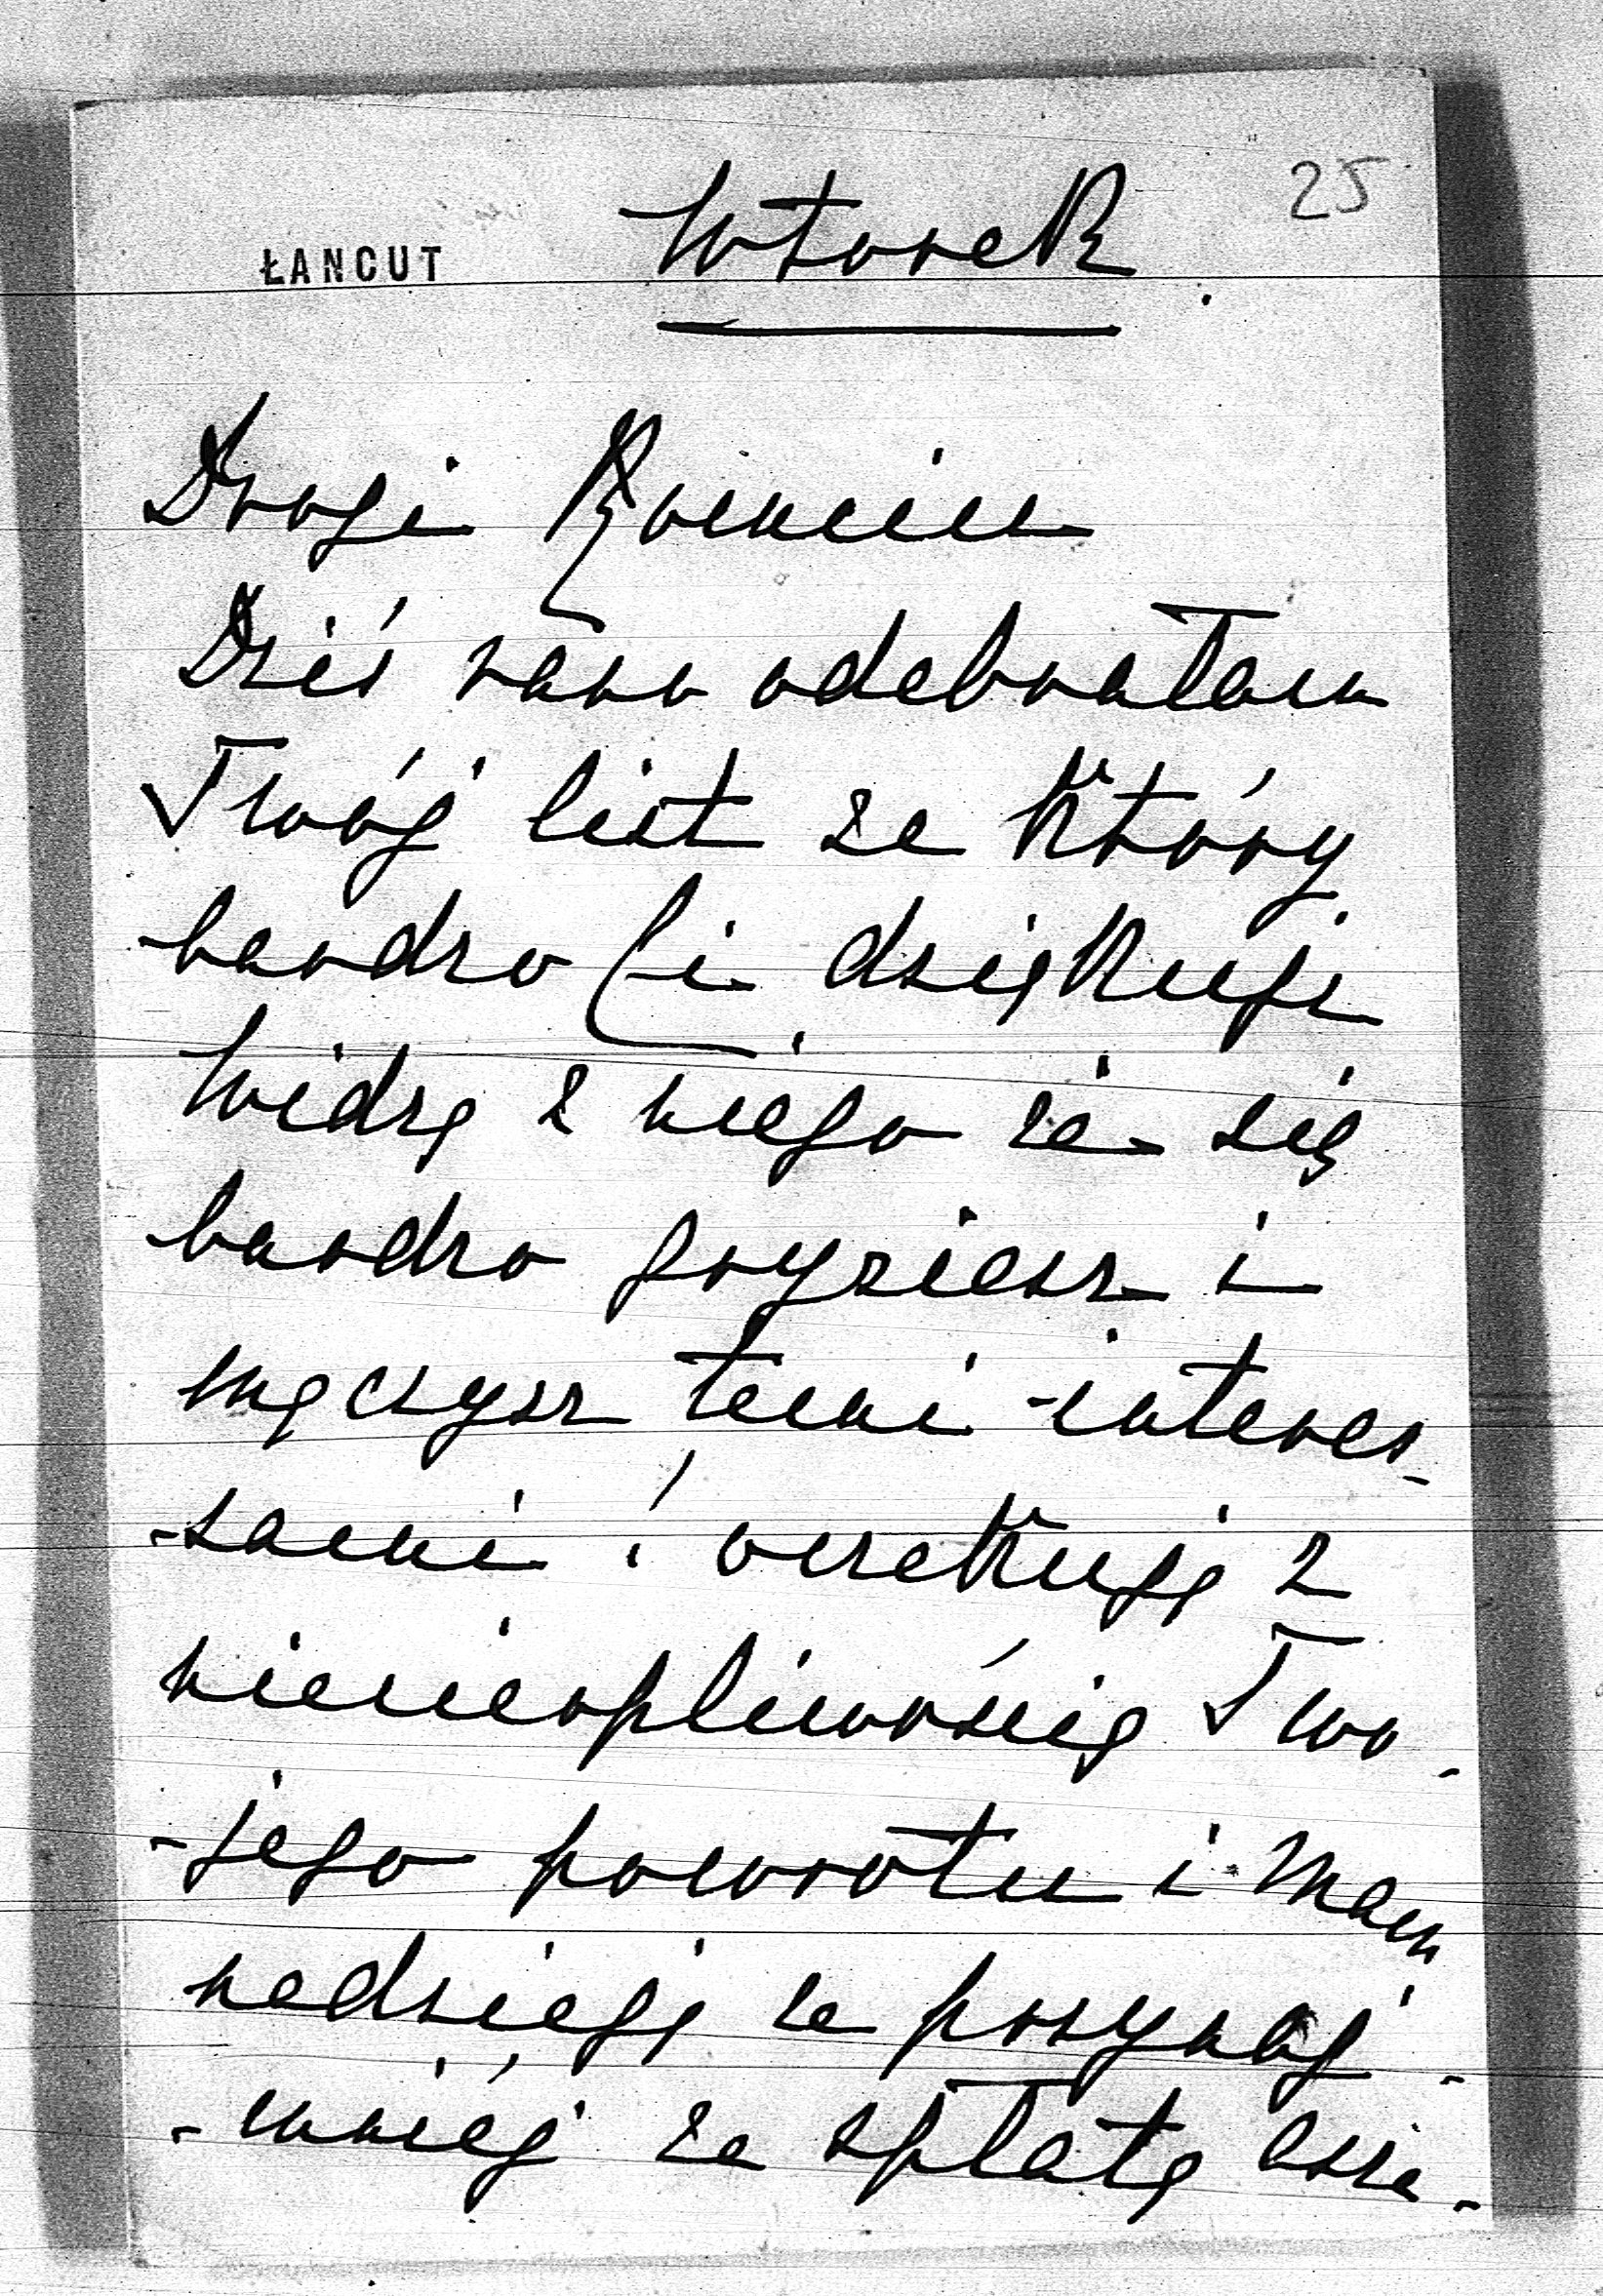 25
ŁANCUT
Wtorek
Drogi Romciu
Dziś rano odebrałam
Twój list za który
bardzo Ci dziękuję
Widzę z niego że się
bardzo gryziesz i
męczysz temi interes-
-sami! oczekuję z
niecierpliwością Two-
-jego powrotu i mam
nadzieję że przynaj-
-mniej za spłatę